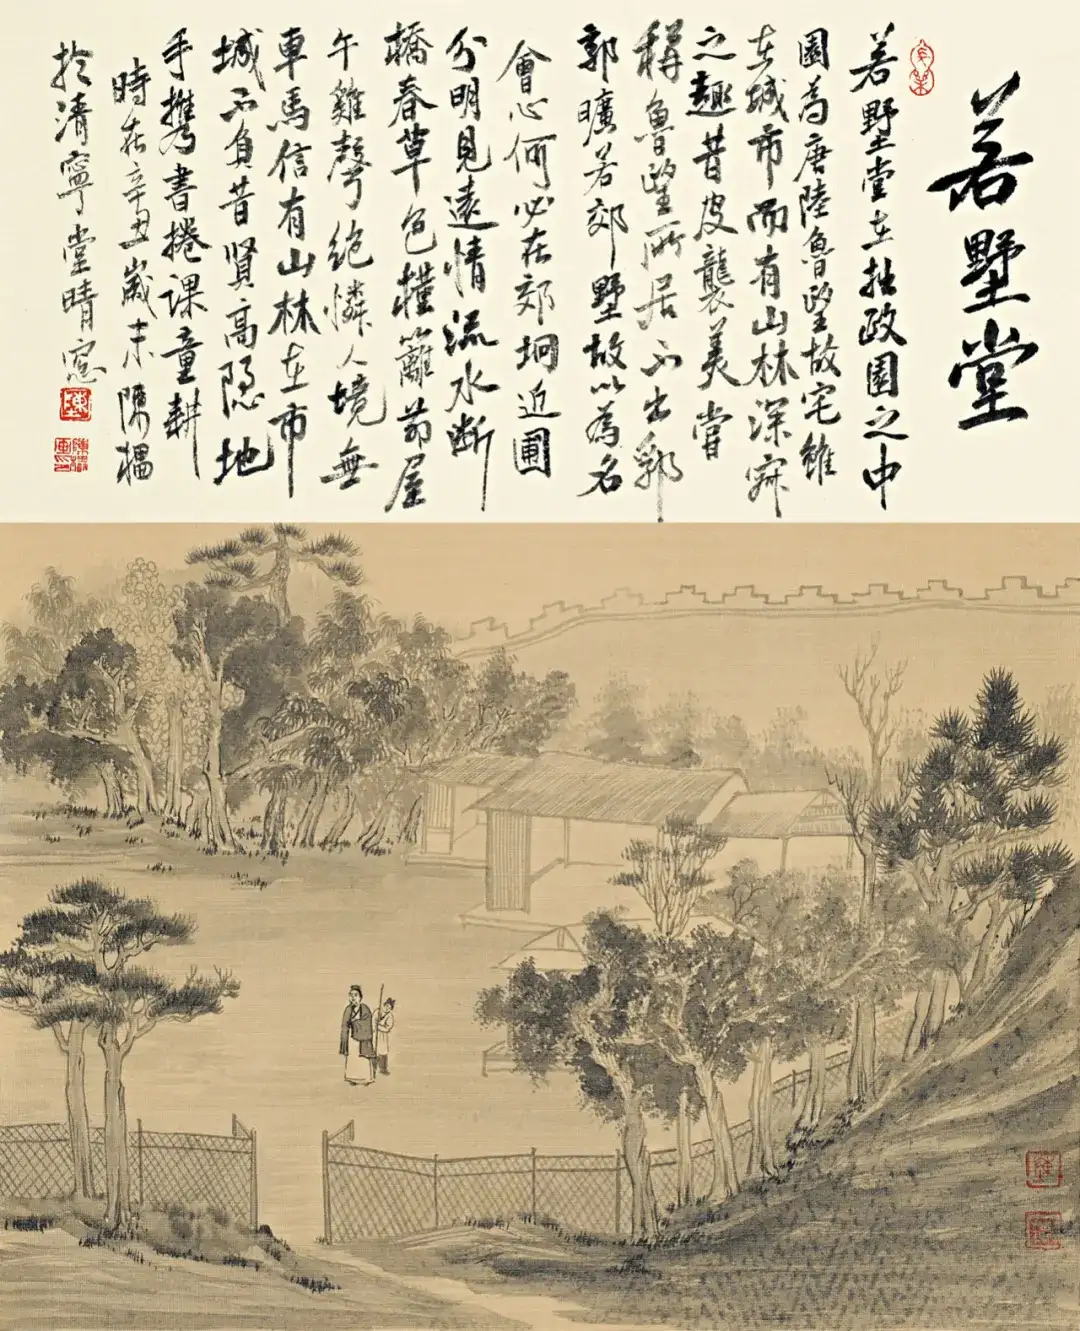 若墅堂
若墅堂在拙政園之中
園為唐陸魯望故宅雖
在城市而有山林深寂
之趣昔皮襲美嘗
稱魯望所居不出郛
郭曠若郊墅故以為名
會心何必在郊坰近圃
分明見遠情流水斷
橋春草色槿籬茆屋
午雞聲絕憐人境無
車馬信有山林在市
城不負昔賢高隱地
手攜書捲課童耕
時在辛丑歲末陳榲
於清寧堂晴窓